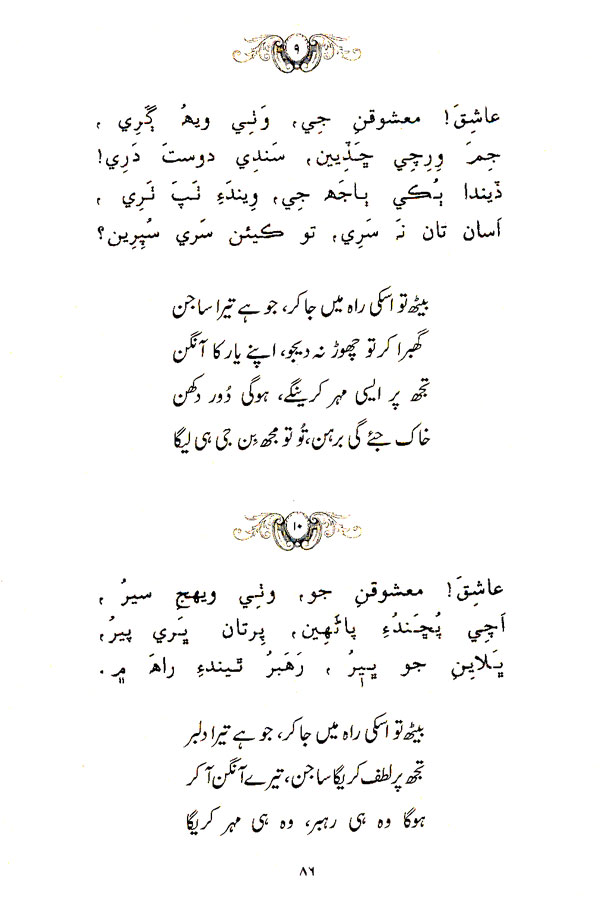 ۹
عاشِقَ! معشوقنِ جي، وَٺِي ويھُ ڳَرِي ،
جِمَ وِرِچِي ڇَڏِيين، سَندِي دوستَ دَرِي!
ڏيندا ٻُڪي ٻاجَهہ جِي، وِيندَءِ تَپَ ٽَرِي ،
اَسان تان نَہ سَرِي، تو ڪيئن سَري سُپِرِين؟
بیٹھ تو اسکی راہ میں جا کر، جو ہے تیرا ساجن
گھبرا کر تو چھوڑ نہ دیجو، اپنے یار کا آنگن
تجھ پر ایسی مہر کرینگے، ہوگی دُور دکھن
خاک جئے گی برہن، تُو تو مجھ بِن جی ہی لیگا
۱۰
عاشِقَ! معشوقنِ جو، وٺِي ويهجِ سيرُ ،
اَچِي پُڇَندُءِ پاڻَهِين، پِرتان ڀَري پيرُ،
ڀَلايِنِ جو ڀيرُ ، رَهَبرُ ٿيندءِ راهَ ۾.
بیٹھ تو اسکی راہ میں جا کر، جو ہے تیرا دلبر
تجھ پر لطف کریگا ساجن، تیرے آنگن آ کر
ہوگا وہ ہی رہبر، وہ ہی مہر کریگا
۸۶